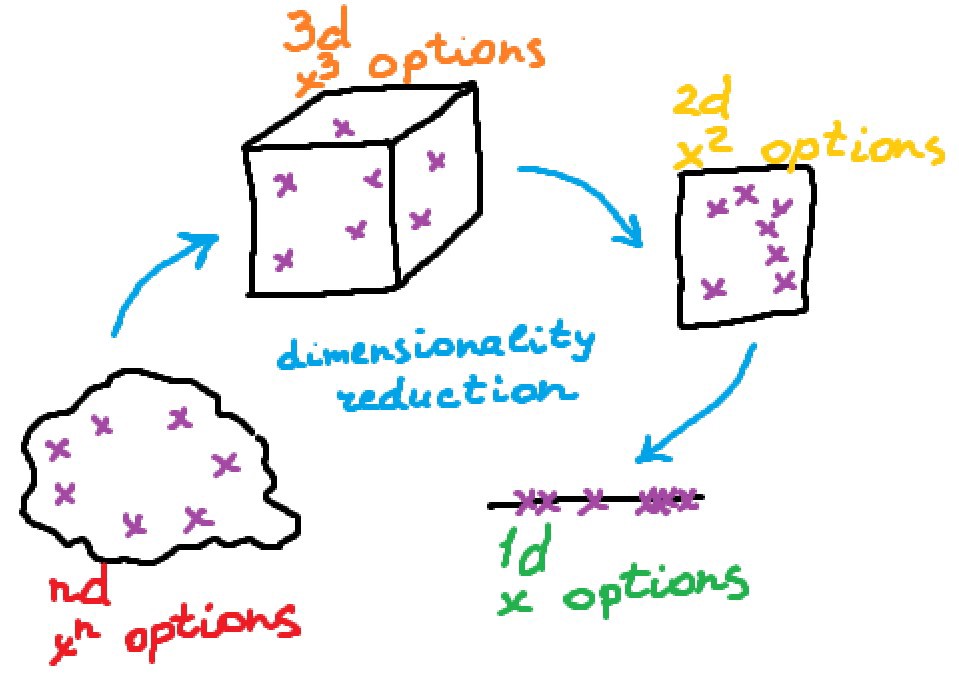 3d
x³ options
2d
x² options
dimensionality
reduction
nd
xⁿ options
1d
x options